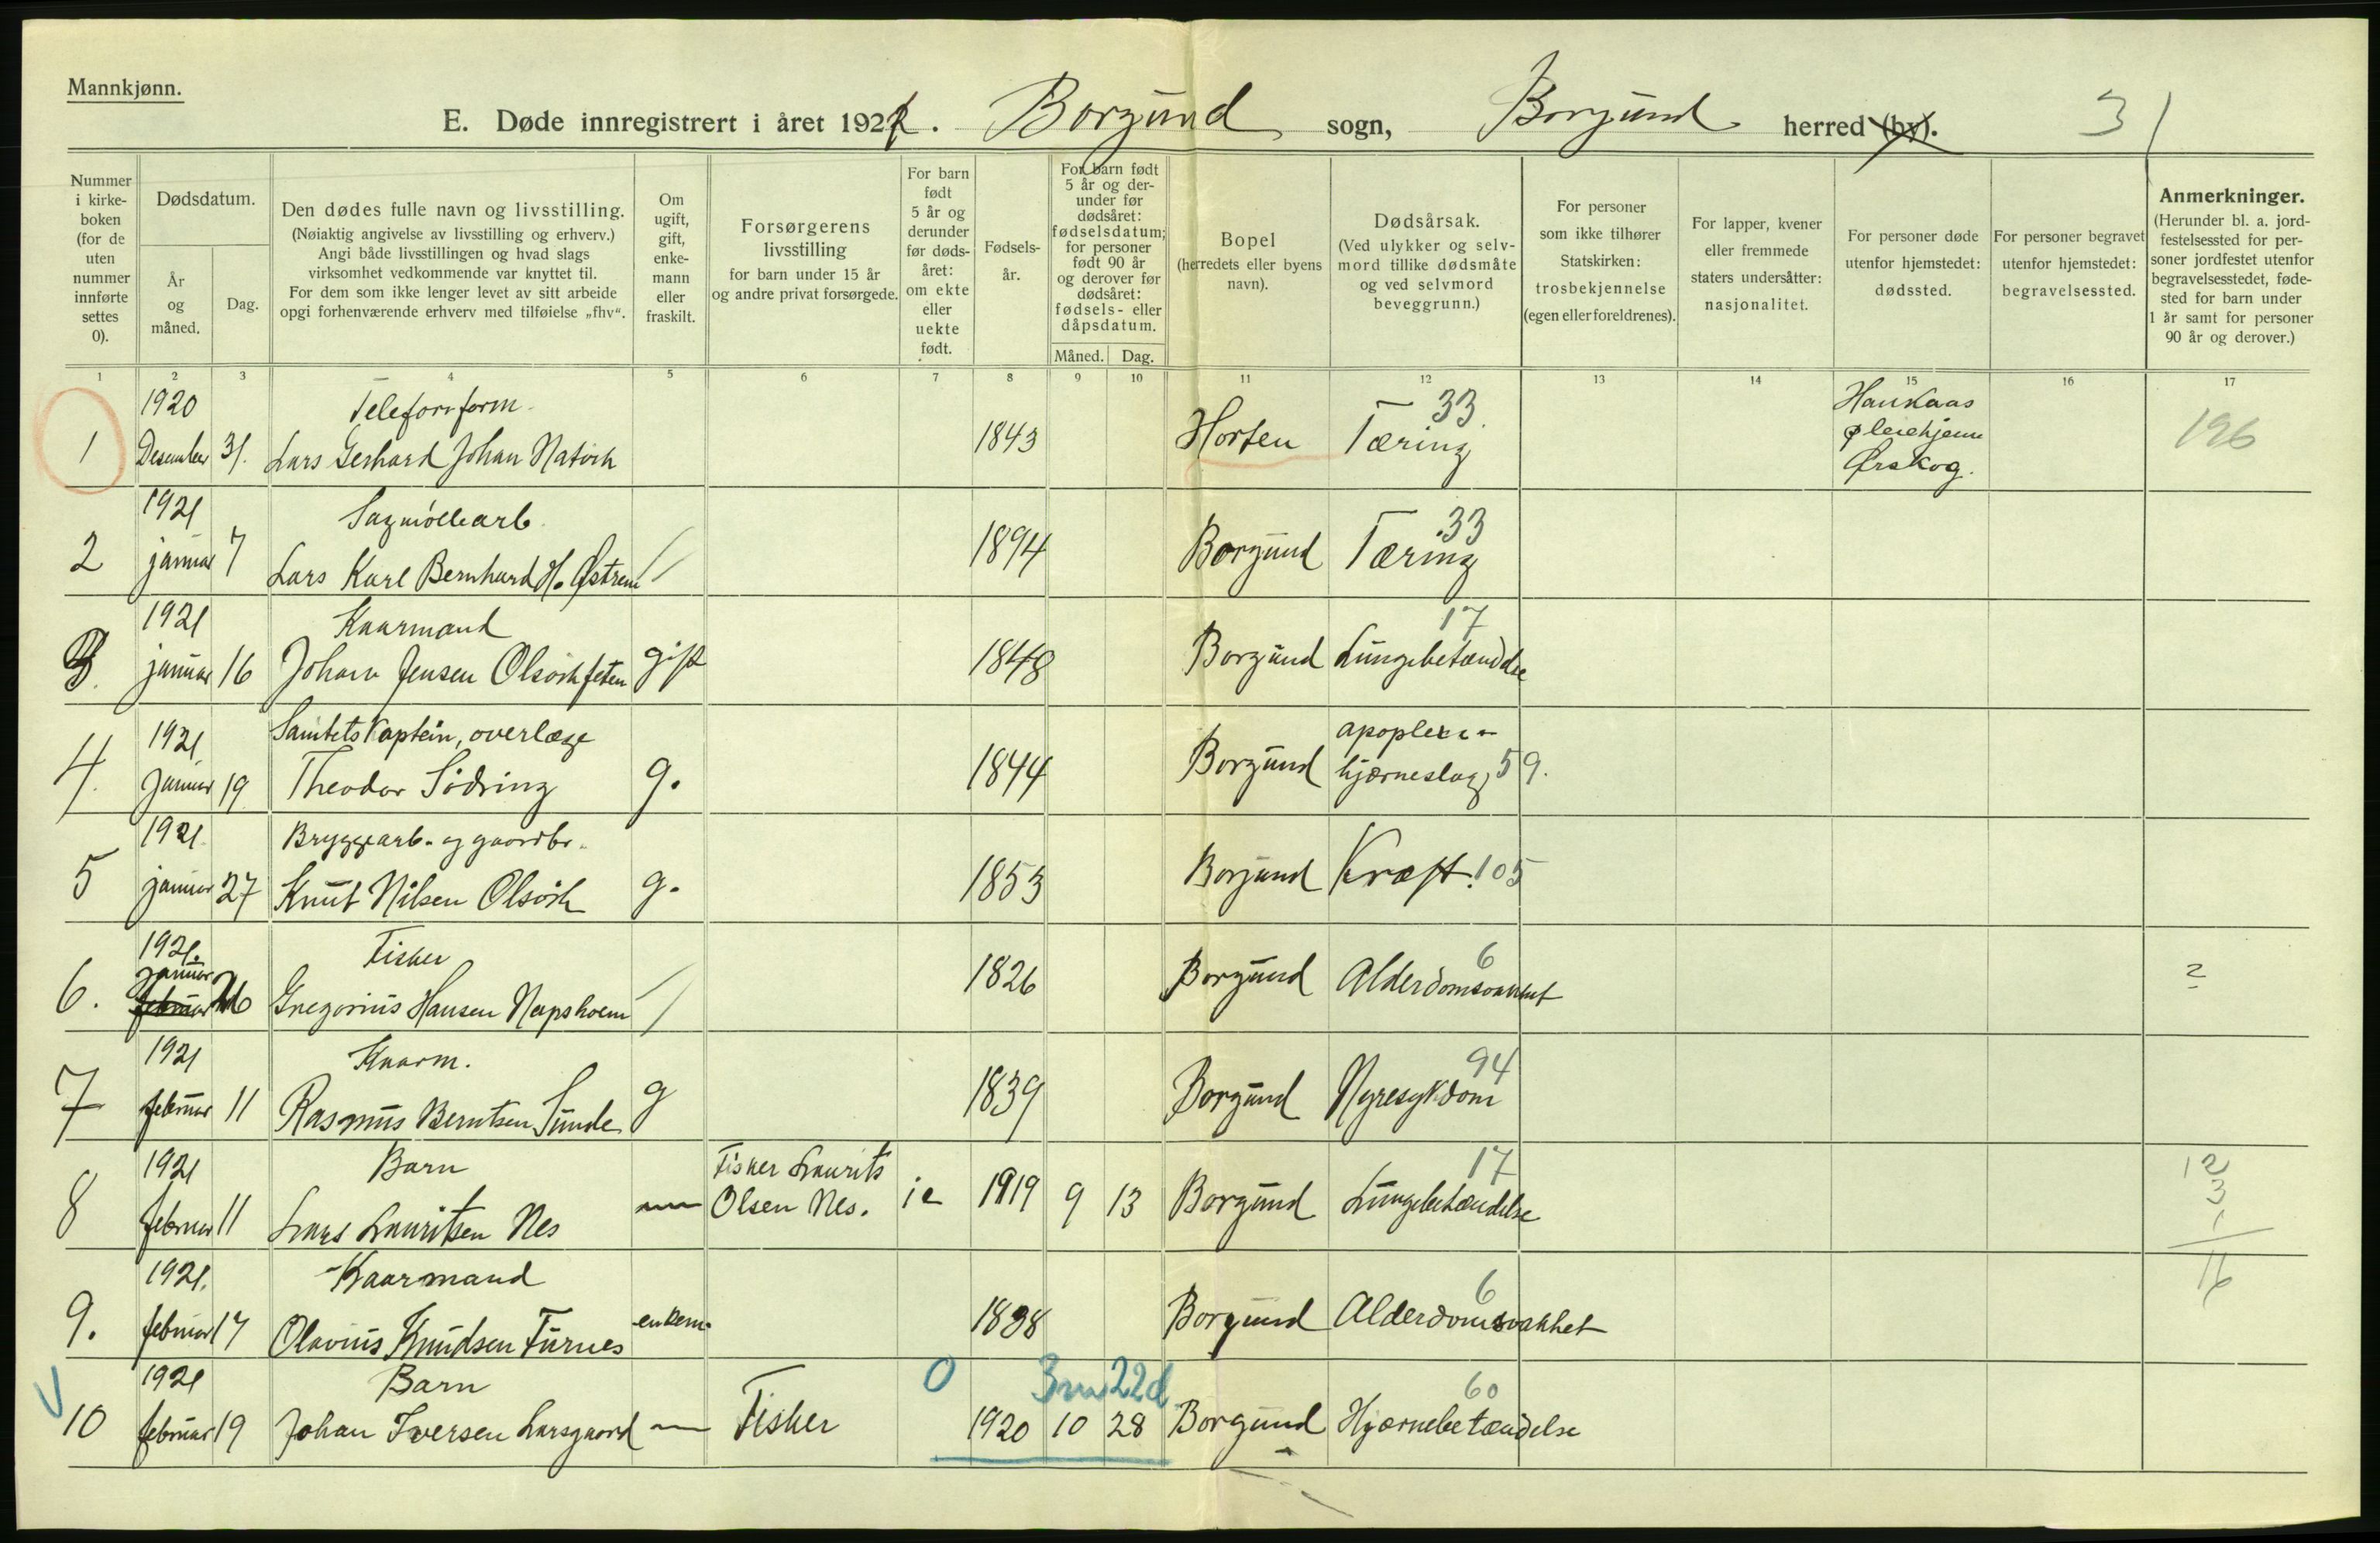 Mannkjønn.
E. Døde innregistrert i året 192 . Borgund sogn, Borgund herred (by). 31
Nummer i kirkeboken (for de uten nummer innførte settes 0).
Dødsdatum.
År og måned.
Dag.
Den dødes fulle navn og livsstilling.
(Nøiaktig angivelse av livsstilling og erhverv.)
Angi både livsstillingen og hvad slags
virksomhet vedkommende var knyttet til.
For dem som ikke lenger levet av sitt arbeide
opgi forhenværende erhverv med tilføielse „fhv“.
Om ugift, gift, enkemann eller fraskilt.
Forsørgerens livsstilling
for barn under 15 år
og andre privat forsørgede.
For barn født 5 år og derunder før dødsåret: om ekte eller uekte født.
Fødselsår.
For barn født 5 år og derunder før dødsåret: fødselsdatum; for personer født 90 år og derover før dødsåret: fødsels- eller dåpsdatum.
Måned. Dag.
Bopel
(herredets eller byens navn).
Dødsårsak.
(Ved ulykker og selvmord tillike dødsmåte og ved selvmord beveggrunn.)
For personer som ikke tilhører Statskirken: trosbekjennelse (egen eller foreldrenes).
For lapper, kvener eller fremmede staters undersåtter: nasjonalitet.
For personer døde utenfor hjemstedet: dødssted.
For personer begravet utenfor hjemstedet: begravelsessted.
Anmerkninger.
(Herunder bl. a. jordfestelsessted for personer jordfestet utenfor begravelsesstedet, fødested for barn under 1 år samt for personer 90 år og derover.)
1 2 3 4 5 6 7 8 9 10 11 12 13 14 15 16 17
1920 33 Haukaas
1 Desember 31. Lars Gerhard Johan 1843 Horten Tæring pleiehjem 196
Ørskog.
1921 Sagmøllearb. 33
2 januar 7 Lars Karl Bernhard H. Østrem / 1894 Borgund Tæring
1921 Kaarmand 17
3. januar 16 Johan Jensen gift 1848 Borgund Lungebetændelse
1921 Sanitetskaptein, overlæge
4. Januar 19 Theodor Södring g. 1844 Borgund hjerneslag 59.
1921. Bryggearb. og gaardbr.
5 januar 27 Knut Nilsen g. 1853 Borgund Kræft. 105
1921. Fisker 6
6. januar februar 26 Gregorius Hansen / 1826 Borgund Alderdomssvakhet 2
1921 Kaarm. 94
7 februar 11 Rasmus Berntsen Sunde g 1839 Borgund Nyresykdom
1921 Barn Fisker Laurits 17 12
8 februar 11 Lars Lauritsen Nes Olsen Nes. 1919 9 13 Borgund Lungebetændelse 3
1
1921. Kaarmand 6 16
9. februar 17 Olavius Knudsen Furnes enkem. 1838 Borgund Alderdomssvakhet
V 1921 Barn 0 3m 22d 60
10 februar 19 Johan Iversen Larsgaard — Fisker 1920 10 28 Borgund Hjernebetændelse